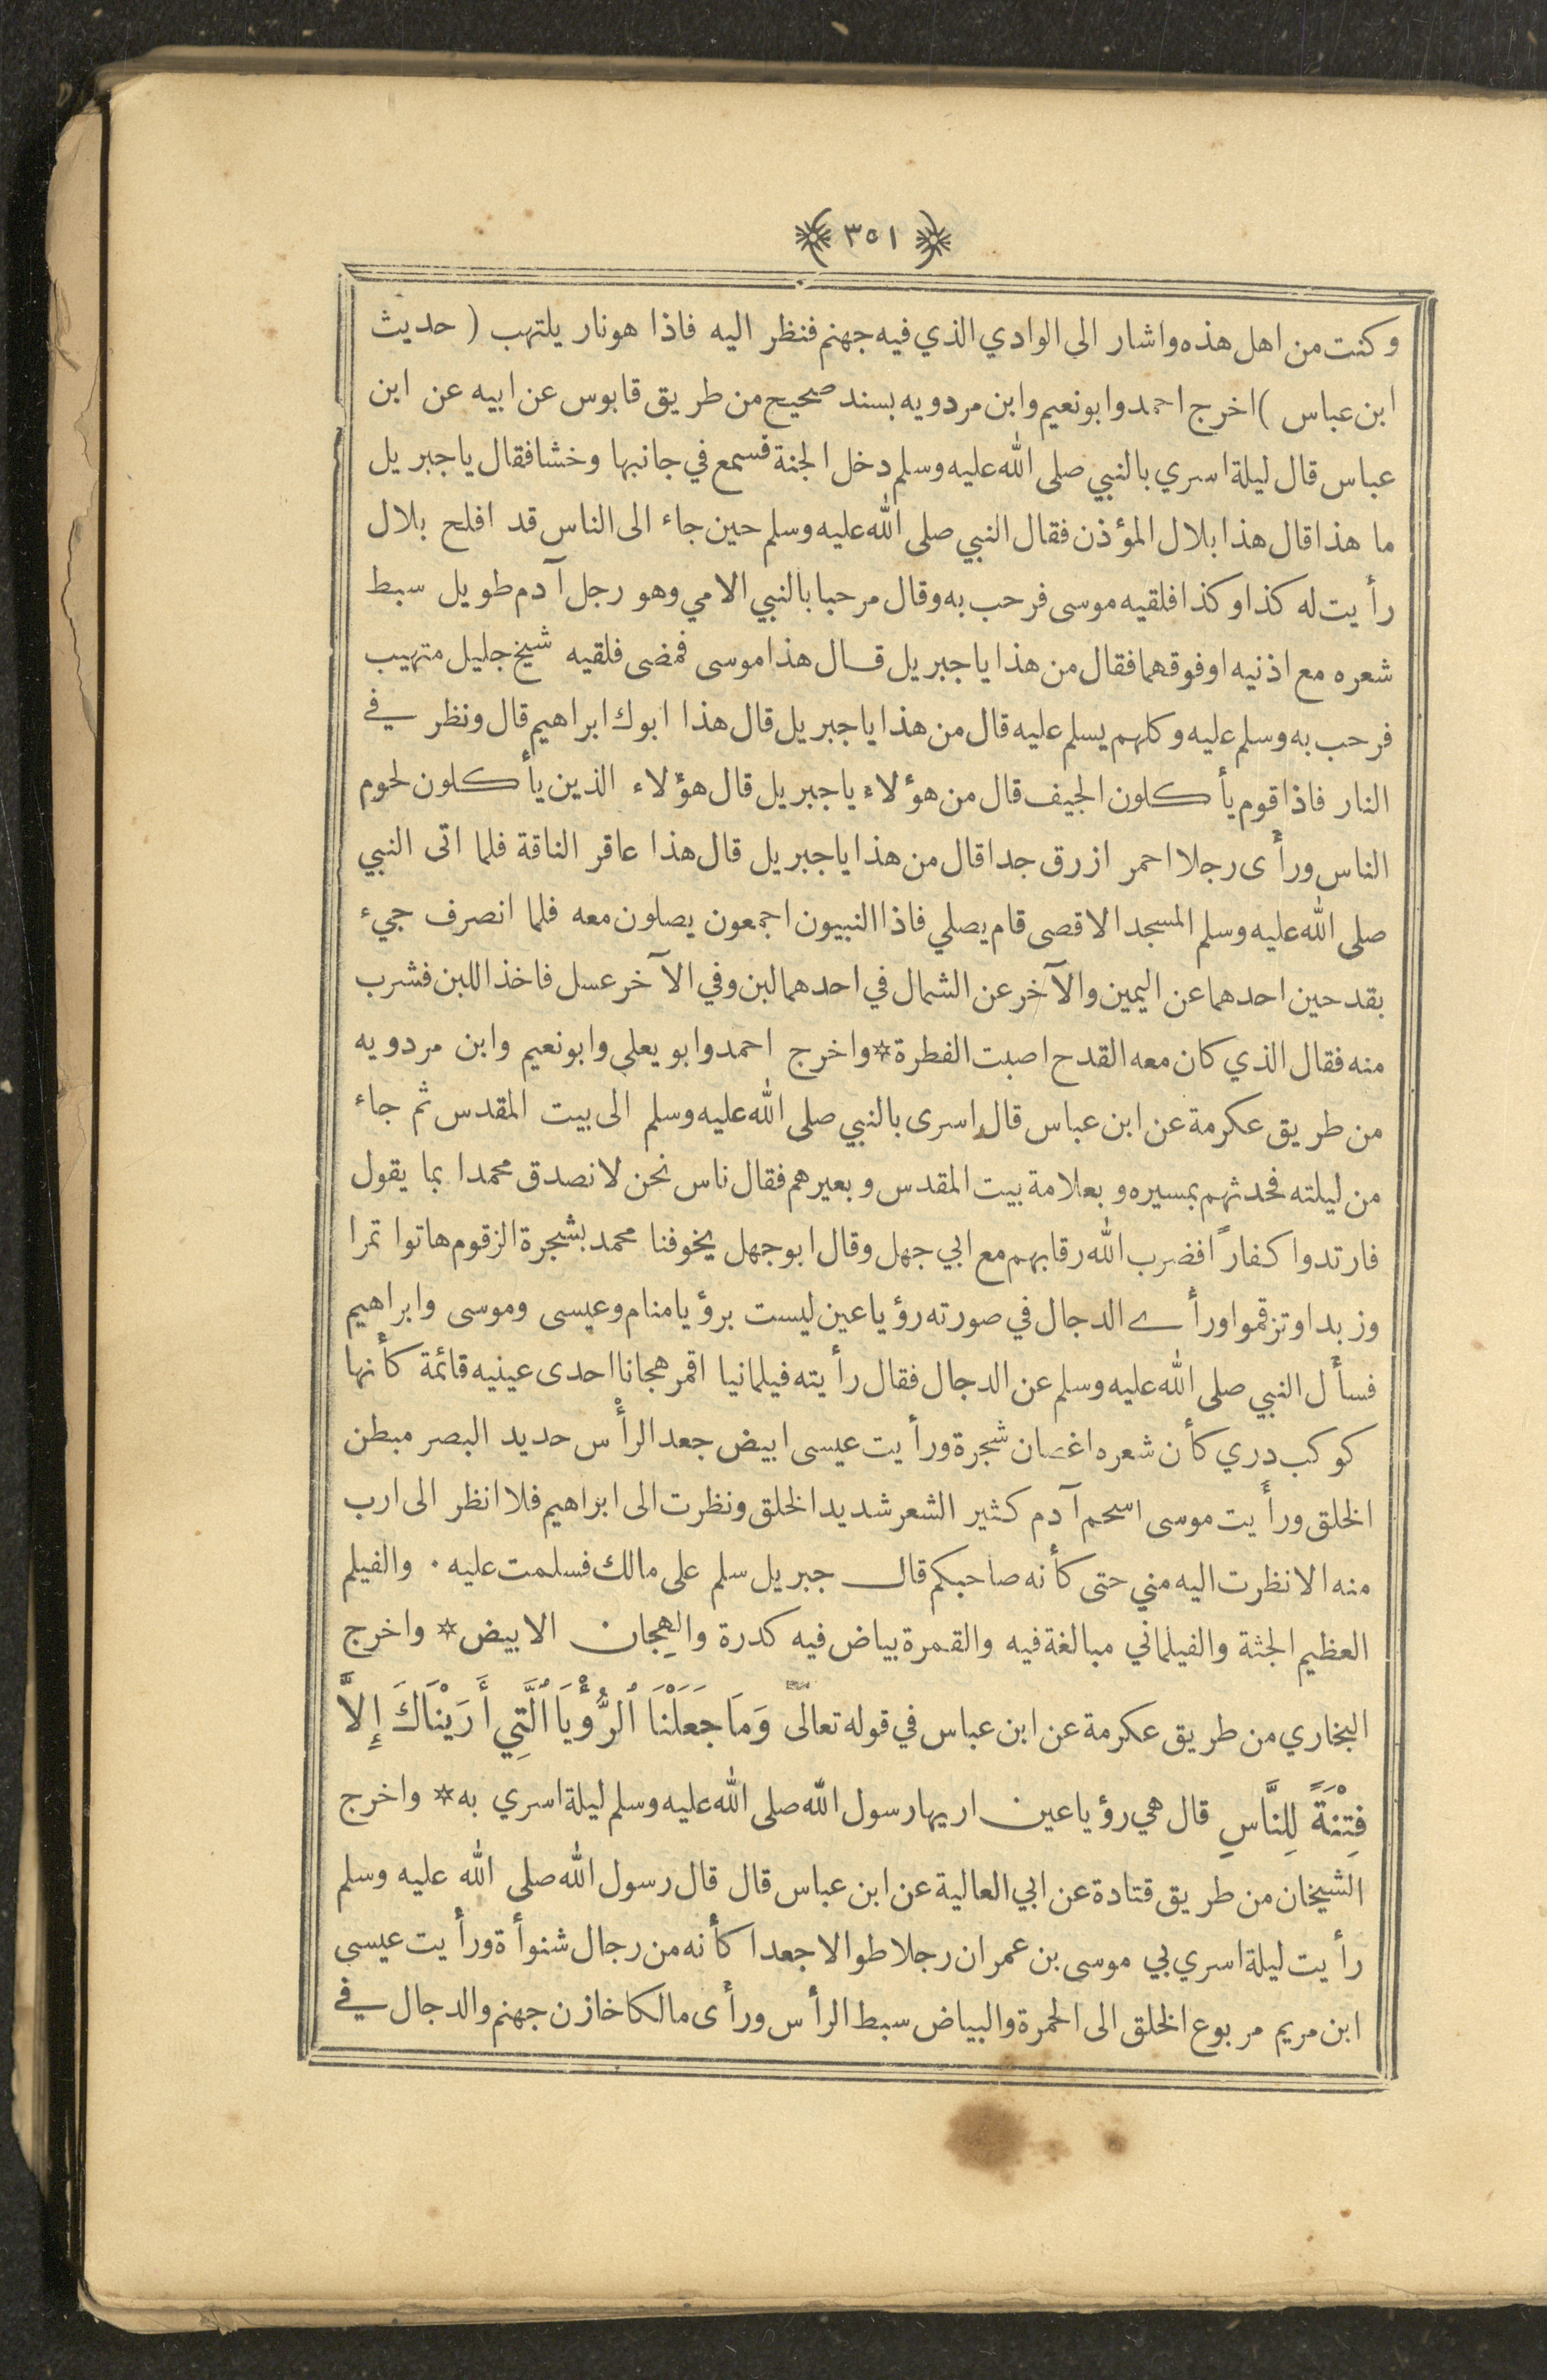 ﴿ ٣٥١ ﴾
وكنت من اهل هذه واشار الى الوادي الذي فيه جهنم فنظر اليه فاذا هو نار يلتهب ( حديث
ابن عباس ) اخرج احمد وابو نعيم وابن مردويه بسند صحيح من طريق قابوس عن ابيه عن ابن
عباس قال ليلة اسري بالنبي صلى الله عليه وسلم دخل الجنة فسمع في جانبها وخشا فقال يا جبريل
ما هذا قال هذا بلال المؤذن فقال النبي صلى الله عليه وسلم حين جاء الى الناس قد افلح بلال
رأيت له كذا وكذا فلقيه موسى فرحب به وقال مرحبا بالنبي الامي وهو رجل آدم طويل سبط
شعره مع اذنيه او فوقهما فقال من هذا يا جبريل قال هذا موسى فمضى فلقيه شيخ جليل متهيب
فرحب به وسلم عليه وكلهم يسلم عليه قال من هذا يا جبريل قال هذا ابوك ابراهيم قال ونظر في
النار فاذا قوم يأكلون الجيف قال من هؤلاء يا جبريل قال هؤلاء الذين يأكلون لحوم
الناس ورأى رجلا احمر ازرق جدا قال من هذا يا جبريل قال هذا عاقر الناقة فلما اتى النبي
صلى الله عليه وسلم المسجد الاقصى قام يصلي فاذا النبيون اجمعون يصلون معه فلما انصرف جيء
بقدحين احدهما عن اليمين والآخر عن الشمال في احدهما لبن وفي الآخر عسل فاخذ اللبن فشرب
منه فقال الذي كان معه القدح اصبت الفطرة * واخرج احمد وابو يعلى وابو نعيم وابن مردويه
من طريق عكرمة عن ابن عباس قال اسرى بالنبي صلى الله عليه وسلم الى بيت المقدس ثم جاء
من ليلته فحدثهم بمسيره و بعلامة بيت المقدس و بعيرهم فقال ناس نحن لا نصدق محمدا بما يقول
فارتدوا كفاراً فضرب الله رقابهم مع ابي جهل وقال ابو جهل يخوفنا محمد بشجرة الزقوم هاتوا تمرا
وزبدا وتزقموا ورأى الدجال في صورته رؤيا عين ليست برؤيا منام وعيسى وموسى وابراهيم
فسأل النبي صلى الله عليه وسلم عن الدجال فقال رأيته فيلمانيا اقمر هجانا احدى عينيه قائمة كأنها
كوكب دري كأن شعره اغصان شجرة ورأيت عيسى ابيض جعد الرأس حديد البصر مبطن
الخلق ورأيت موسى اسحم آدم كثير الشعر شديد الخلق ونظرت الى ابراهيم فلا انظر الى ارب
منه الا نظرت اليه مني حتى كأنه صاحبكم قال جبريل سلم على مالك فسلمت عليه . والفيلم
العظيم الجثة والفيلماني مبالغة فيه والقمرة بياض فيه كدرة والهِجان الابيض * واخرج
البخاري من طريق عكرمة عن ابن عباس في قوله تعالى وَمَا جَعَلْنَا ٱلرُّؤْيَا ٱلَّتِي أَرَيْنَاكَ إِلاَّ
فِتْنَةً لِلنَّاسِ قال هي رؤيا عين اريها رسول الله صلى الله عليه وسلم ليلة اسري به * واخرج
الشيخان من طريق قتادة عن ابي العالية عن ابن عباس قال قال رسول الله صلى الله عليه وسلم
رأيت ليلة اسري بي موسى بن عمران رجلا طوالا جعدا كأنه من رجال شنوأة ورأيت عيسى
ابن مريم مربوع الخلق الى الحمرة والبياض سبط الرأس ورأى مالكا خازن جهنم والدجال في